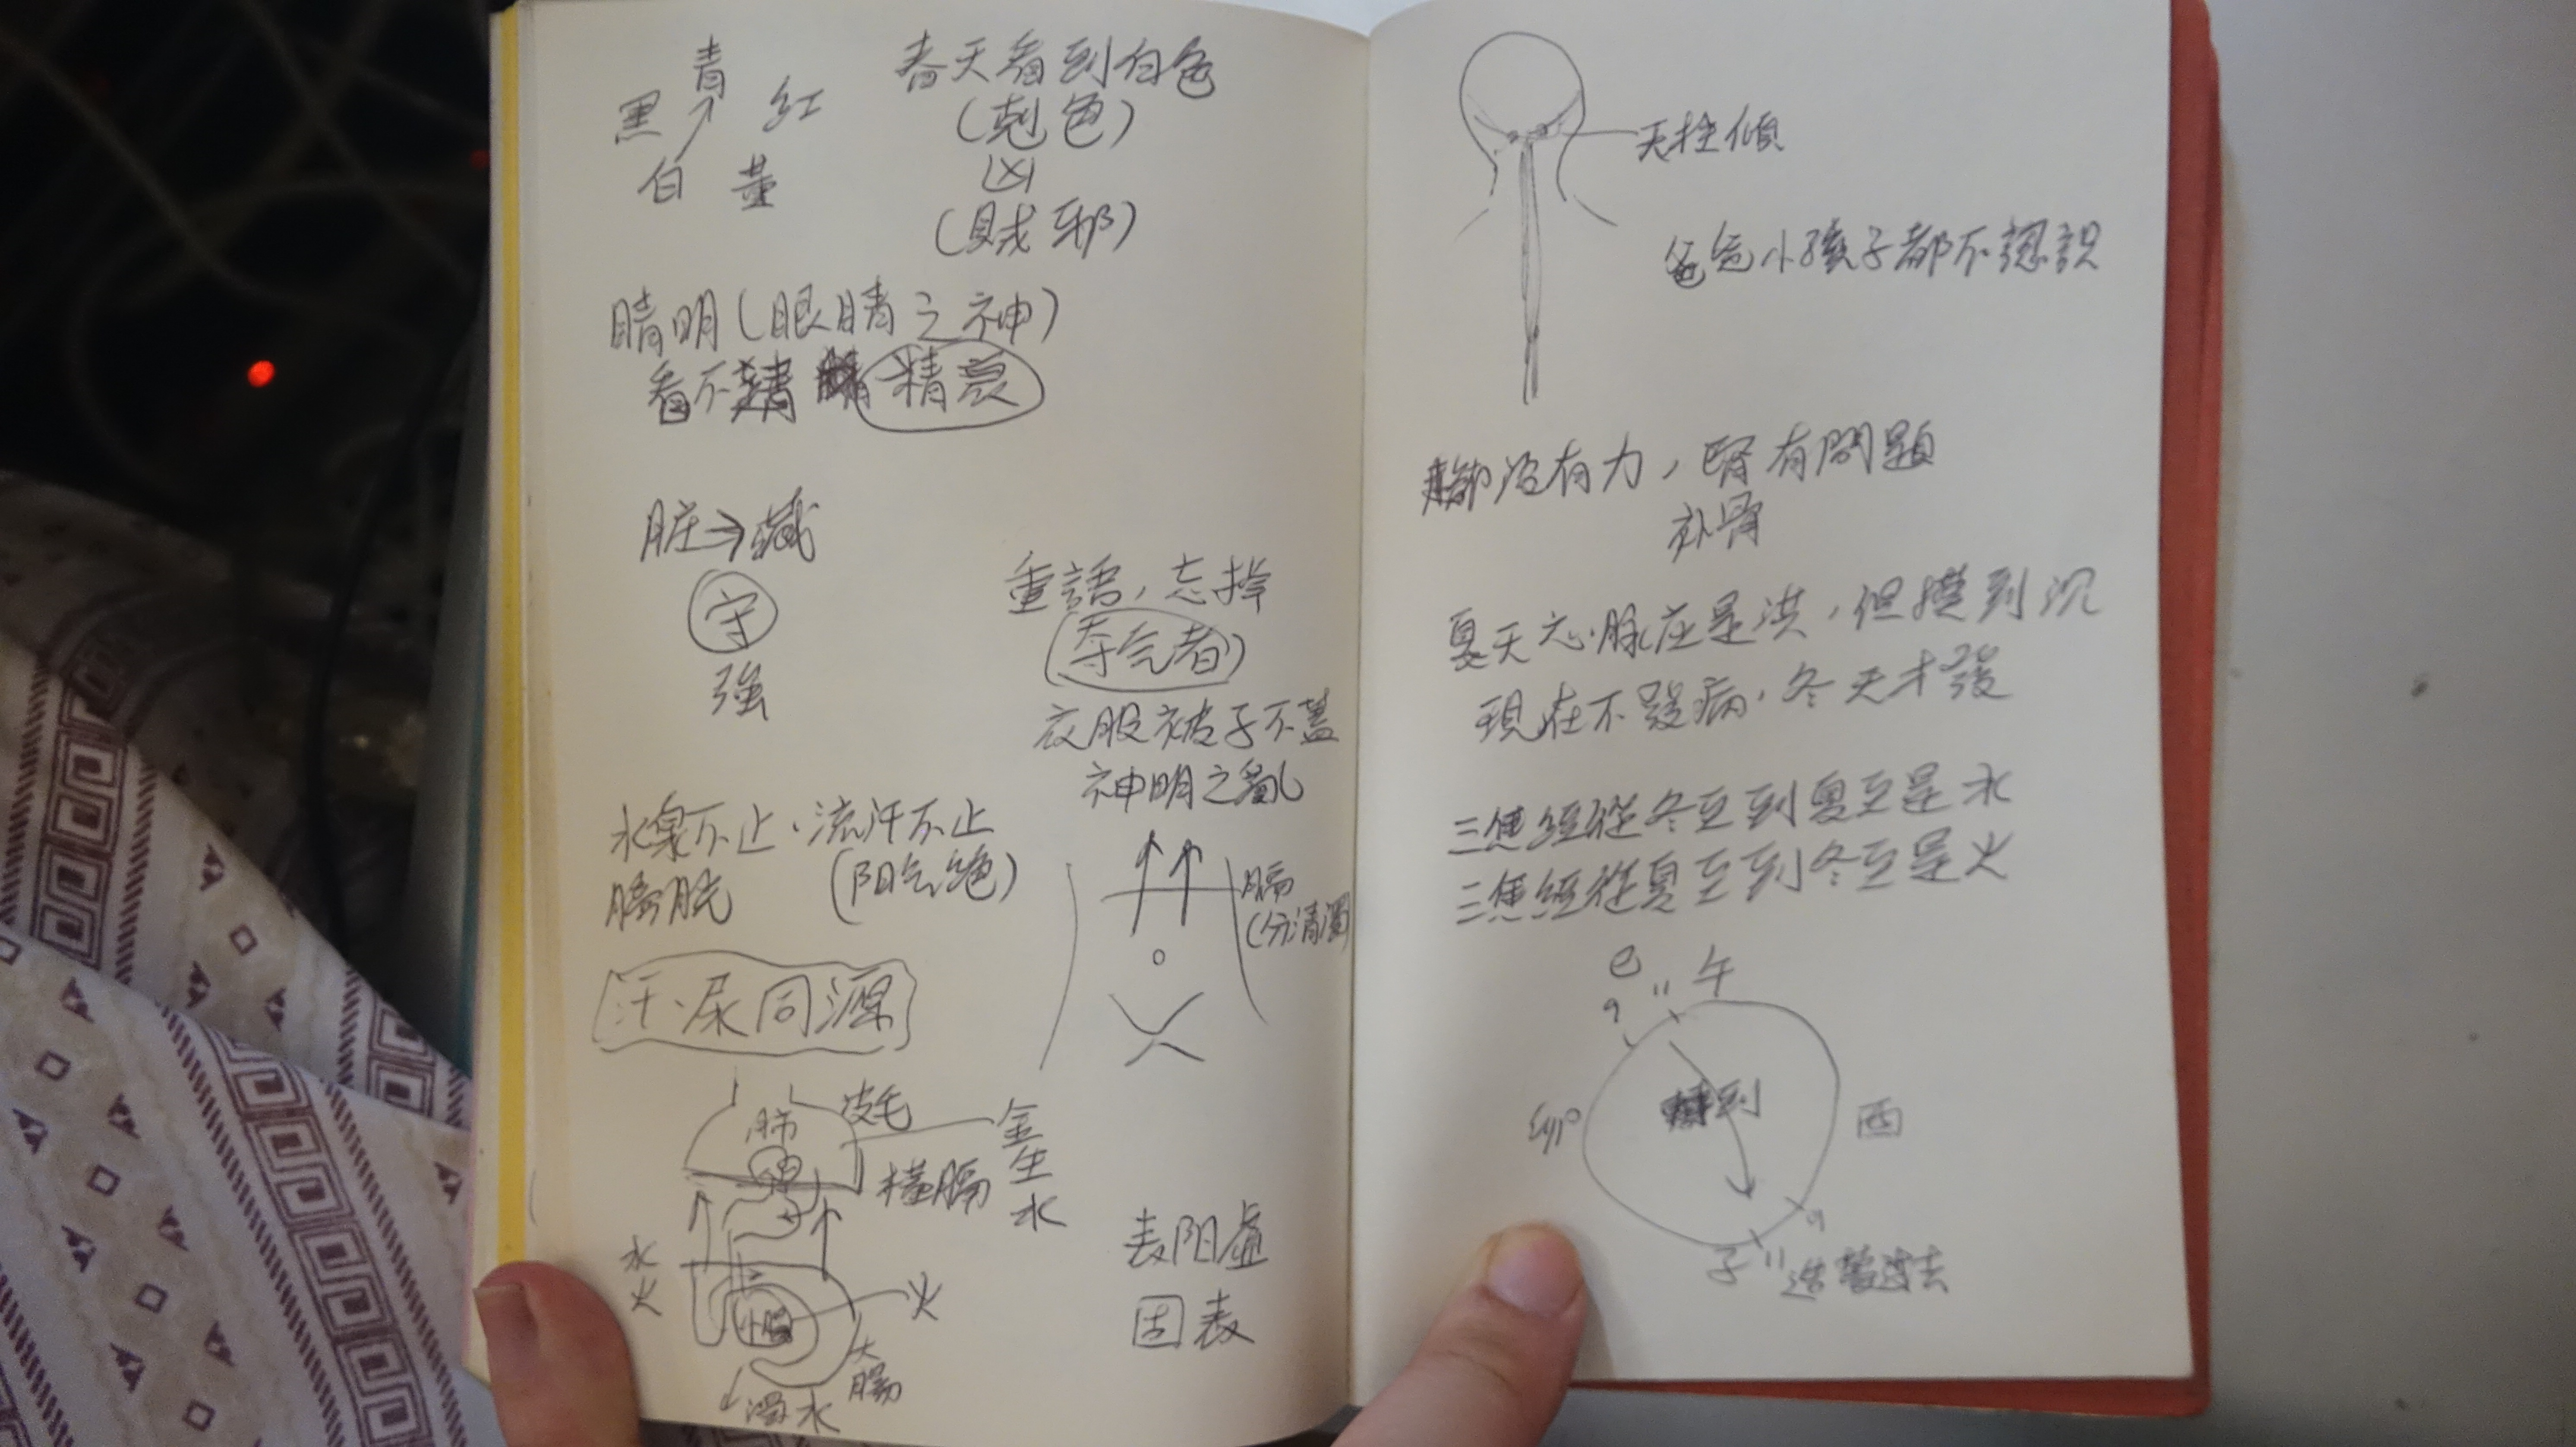 青
黑 紅
白 黃
春天看到白色
(剋色)
凶
(賊邪)
睛明(眼睛之神)
看不清 精衰
脏→藏
守
強
重語,忘掉
夺气者
衣服被子不蓋
神明之亂
水泉不止、流汗不止
膀胱 (阳气绝)
膈
(分清濁)
汗、尿同源
肺 皮毛
金生水
橫膈
水
火
小腸
火
大腸
濁水
表阳虛
固表
天柱傾
爸爸小孩子都不認識
腳沒有力,腎有問題
补腎
夏天心脉应是洪,但摸到沉
現在不發病,冬天才發
三焦經從冬至到夏至是水
三焦經從夏至到冬至是火
巳 午
9 11
卯 到 酉
9
子 11 過去